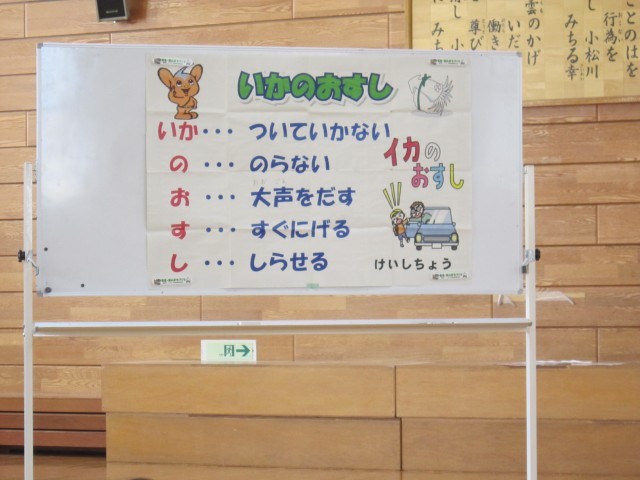 いかのおすし
いか・・・ついていかない
の・・・のらない
お・・・大声をだす
す・・・すぐにげる
し・・・しらせる
イカの
おすし
けいしちょう
ことのはを
行為を
し 小松川
みちる幸
雲のかげ
いだ
働き
尊び
し 小
みち